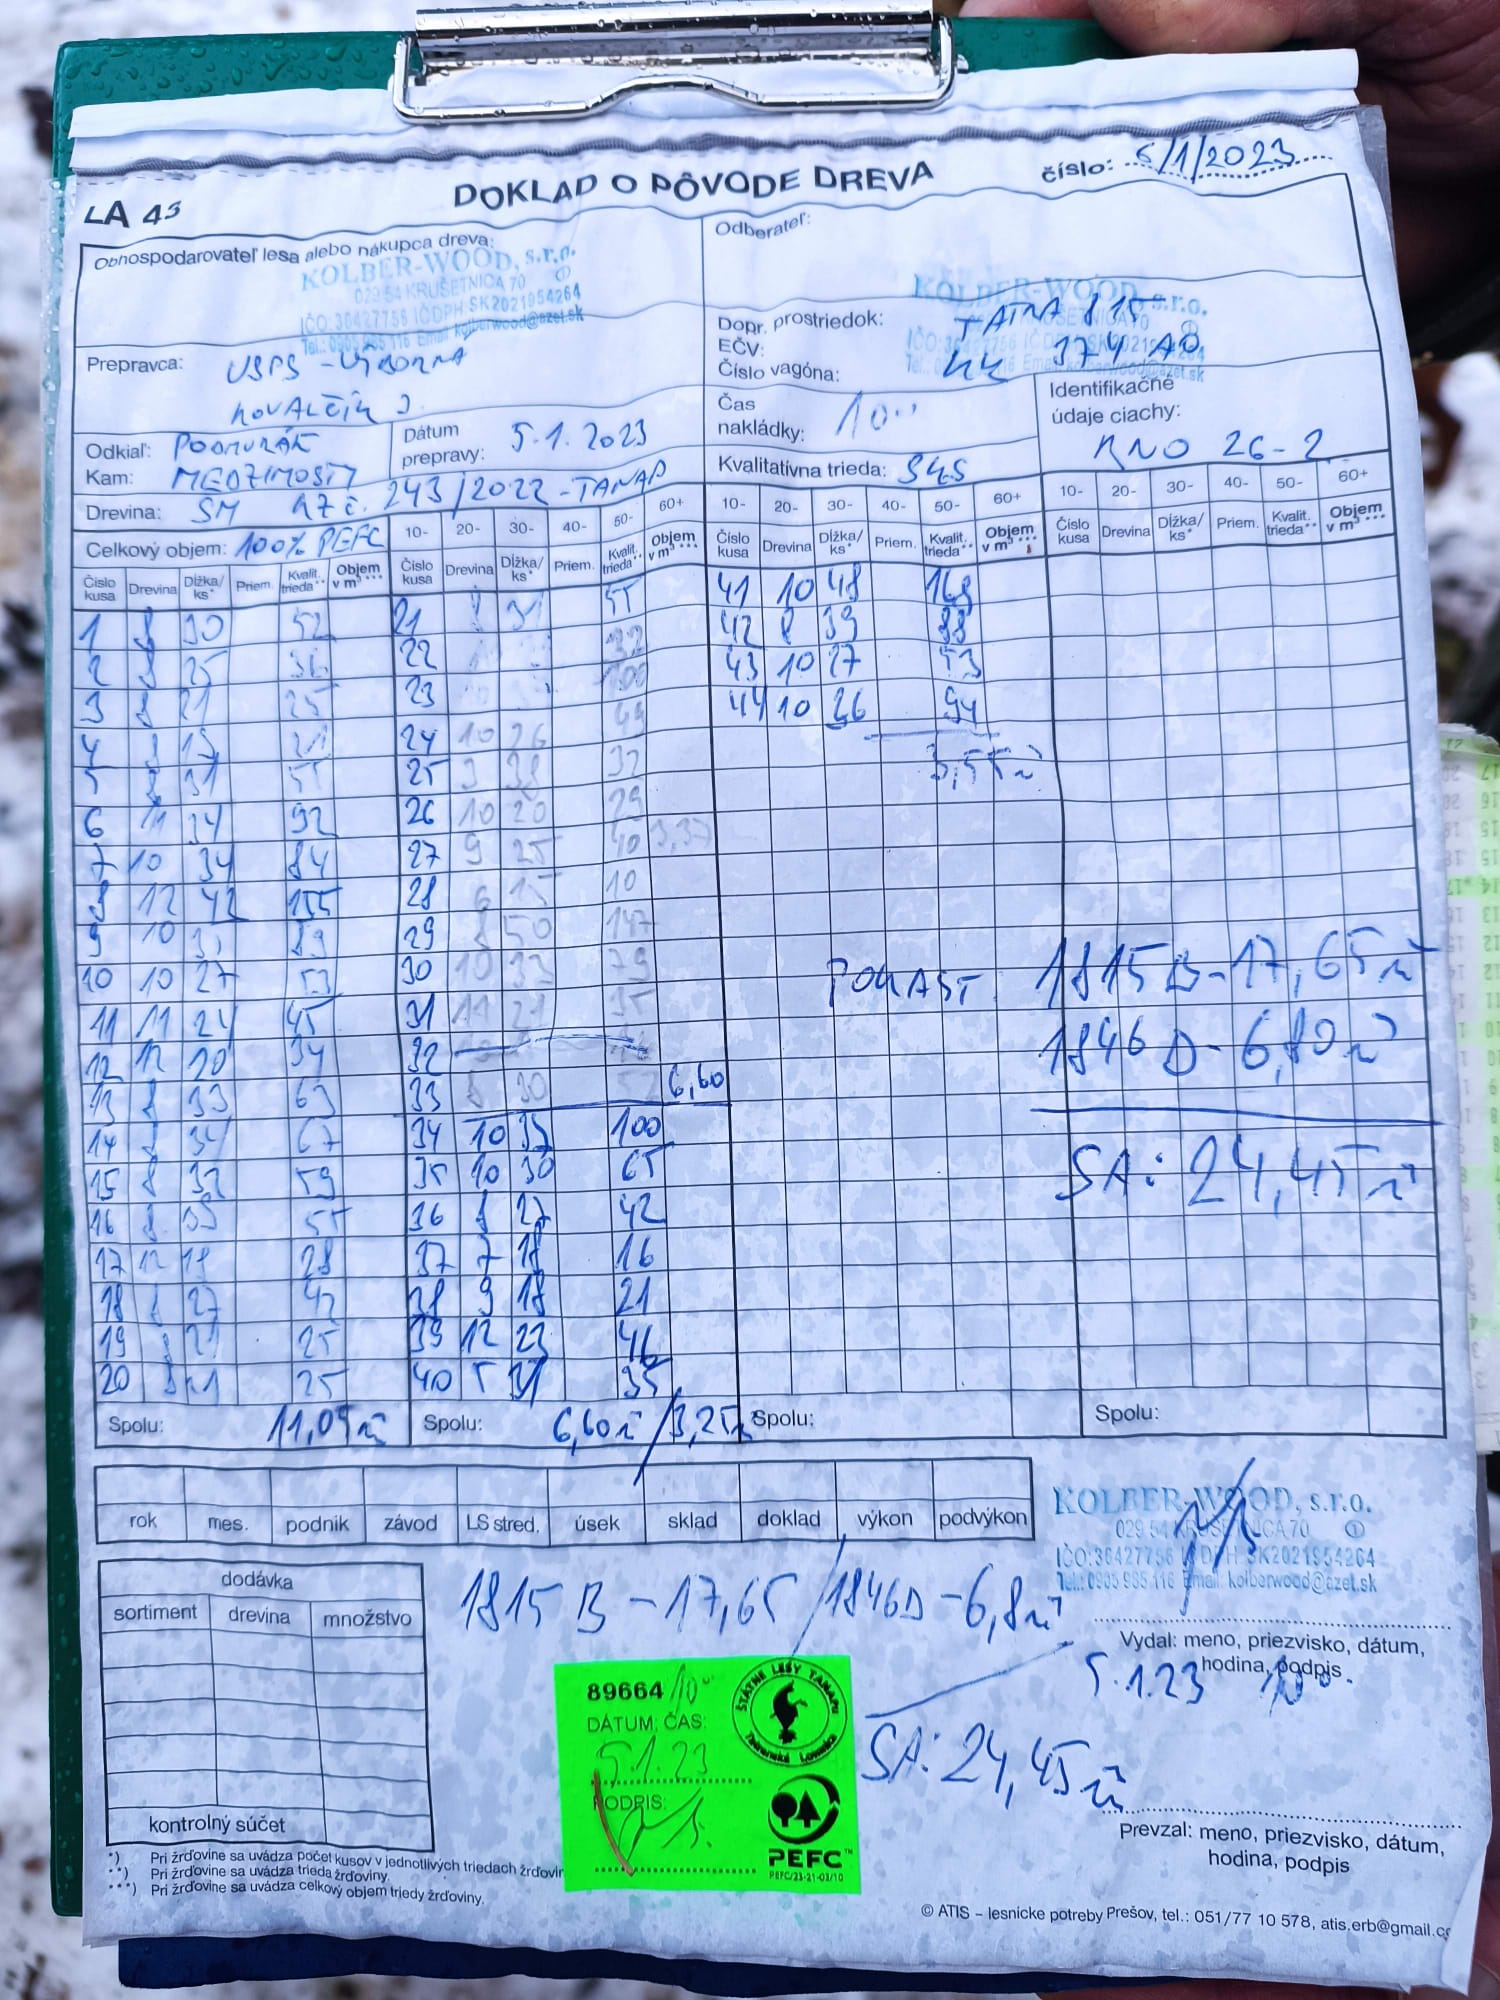 LA 43
DOKLAD O PÔVODE DREVA
číslo: 5/1/2023
Obhospodarovateľ lesa alebo nákupca dreva:
KOLBER-WOOD, s.r.o.
029 54 KRUŠETNICA 70
IČO:36427756 IČDPH:SK2021954264
Tel.: 0905 965 116 Email: kolberwood@azet.sk
Odberateľ:
KOLBER-WOOD, s.r.o.
Prepravca:
KOVALČÍK J.
Dopr. prostriedok: TATRA 815
EČV: KK 374 AO
Číslo vagóna:
Odkiaľ: PODMURÁŇ
Kam: MEDZIMOSTY
Dátum prepravy: 5.1.2023
Čas nakládky: 10
Identifikačné údaje ciachy:
KNO 26-2
Drevina: SM
243/2022-TANAP
Kvalitatívna trieda:
Celkový objem: 100% PEFC
10- 20- 30- 40- 50- 60+ 10- 20- 30- 40- 50- 60+ 10- 20- 30- 40- 50- 60+
Číslo kusa Drevina Dĺžka/ks* Priem. Kvalit. trieda** Objem v m³ ***
Číslo kusa Drevina Dĺžka/ks* Priem. Kvalit. trieda** Objem v m³ ***
Číslo kusa Drevina Dĺžka/ks* Priem. Kvalit. trieda** Objem v m³ ***
Číslo kusa Drevina Dĺžka/ks* Priem. Kvalit. trieda** Objem v m³ ***
1 8 30 52 21 8 31 55 41 10 48 168
2 8 25 36 22 42 8 39 88
3 8 21 25 23 100 43 10 27 53
4 8 24 10 26 49 44 10 36 94
5 8 31 55 25 9 32
6 11 34 92 26 10 20 29
7 10 34 84 27 9 25 40 3,37
8 12 42 155 28 6 15 10
9 10 89 29 8 50 147
10 10 27 53 30 10 33 79
11 11 24 45 31 11 21 35
12 12 20 34 32
13 8 33 63 33 8 30 52 6,60
14 8 34 67 34 10 100
15 8 32 59 35 10 30 65
16 8 55 36 8 27 42
17 12 18 28 37 7 18 16
18 8 27 42 38 9 18 21
19 8 21 25 39 12 23 46
20 8 21 25 40 5 31 35
PORAST 1815 B-17,65 m³
1846 D-6,80 m³
SA: 24,45 m³
Spolu: 11,05 m³
Spolu: 6,60 m³/3,25 m³
Spolu:
Spolu:
rok mes. podnik závod LS stred. úsek sklad doklad výkon podvýkon
KOLBER-WOOD, s.r.o.
029 54 KRUŠETNICA 70
IČO:36427756 IČDPH:SK2021954264
Tel.: 0905 965 116 Email: kolberwood@azet.sk
dodávka
sortiment drevina množstvo
kontrolný súčet
1815 B - 17,65 / 1846 D - 6,8 m³
SA: 24,45 m³
Vydal: meno, priezvisko, dátum, hodina, podpis
5.1.23 10
89664 10
DÁTUM, ČAS:
5.1.23
PODPIS:
ŠTÁTNE LESY TANAPU
Tatranská Lomnica
PEFC™
PEFC/23-21-03/10
Prevzal: meno, priezvisko, dátum, hodina, podpis
*) Pri žrďovine sa uvádza počet kusov v jednotlivých triedach
**) Pri žrďovine sa uvádza trieda žrďoviny.
***) Pri žrďovine sa uvádza celkový objem triedy žrďoviny.
© ATIS – lesnícke potreby Prešov, tel.: 051/77 10 578,